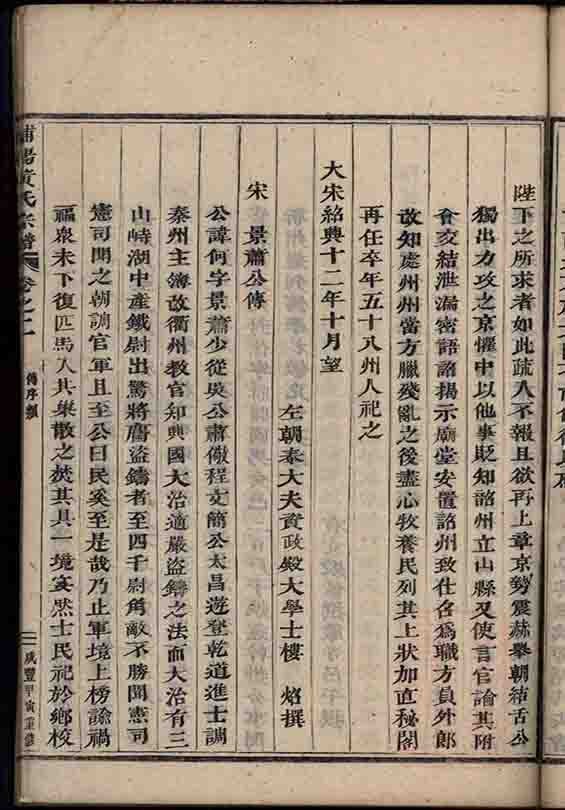 陛下之所求者如此疏入不報且欲再上章京勢震赫舉朝結舌公
獨出力攻之京懼中以他事貶知韶州立山縣又使言官論其附
會交結泄漏密語詔揭示廟堂安置韶州致仕召為職方員外郎
改知處州州當方臘殘亂之後盡心牧養民列其上狀加直秘閣
再任卒年五十八州人祀之
大宋紹興十二年十月望
左朝奉大夫資政殿大學士樓 炤撰
宋 景蕭公傳
公諱何字景蕭少從吳公肅儆程文簡公大昌遊登乾道進士調
泰州主簿改衢州教官知興國大冶適嚴盜鑄之法而大冶有三
山峙湖中產鐵尉出驚將膺盜鑄者至四千尉角敵不勝聞憲司
憲司聞之朝調官軍且至公曰民奚至是哉乃止軍境上榜諭禍
福衆未下復匹馬入其巢散之焚其具一境宴然士民祀於鄉校
浦陽黃氏宗譜 卷之二 傳序類 咸豐甲寅重修